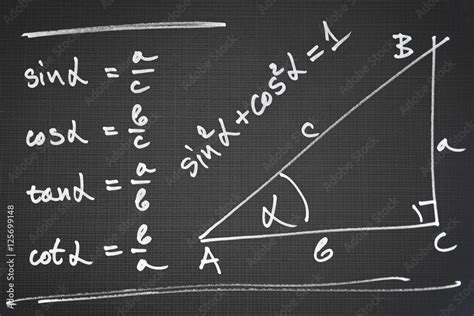 sin α = a/c
cos α = b/c
tan α = a/b
cot α = b/a
sin²α + cos²α = 1
B
c
a
α
A
b
C
Adobe Stock
Adobe Stock | #125699148